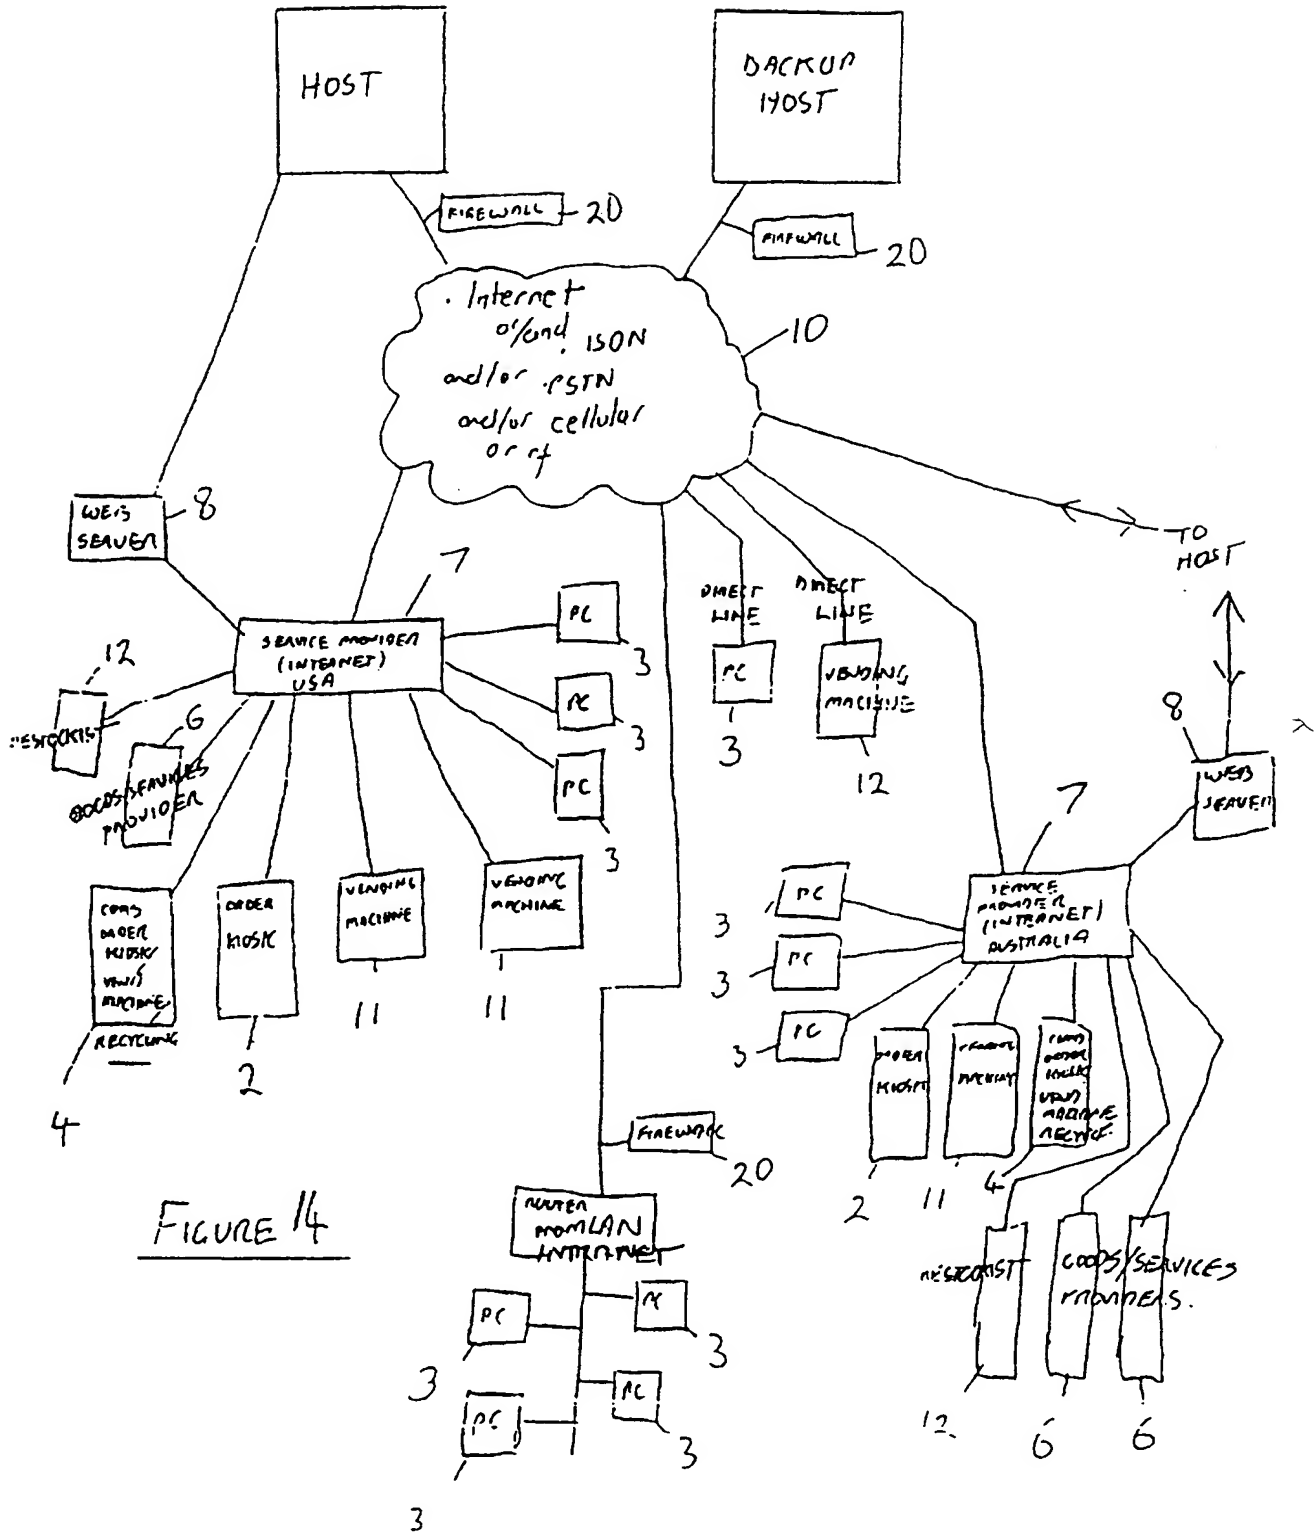 HOST
BACKUP
HOST
FIREWALL
20
FIREWALL
20
. Internet
or/and
. ISDN
and/or .PSTN
and/or cellular
or rf
10
TO
HOST
WEB
SERVER
8
7
SERVICE PROVIDER
(INTERNET)
USA
PC
3
PC
3
PC
3
DIRECT
LINE
PC
3
DIRECT
LINE
VENDING
MACHINE
12
12
RESTOCKIST
6
GOODS/SERVICES
PROVIDER
ORDER
KIOSK
MACHINE
RECYCLING
4
ORDER
KIOSK
2
VENDING
MACHINE
11
VENDING
MACHINE
11
8
WEB
SERVER
7
SERVICE
PROVIDER
(INTERNET)
AUSTRALIA
PC
3
PC
3
PC
3
ORDER
KIOSK
2
VENDING
MACHINE
11
ORDER
KIOSK
VEND
MACHINE
RECYCLE.
4
RESTOCKIST
12
GOODS/SERVICES
PROVIDERS.
6
6
FIREWALL
20
ROUTER
FROM LAN
INTRANET
PC
3
PC
3
PC
3
PC
3
FIGURE 14